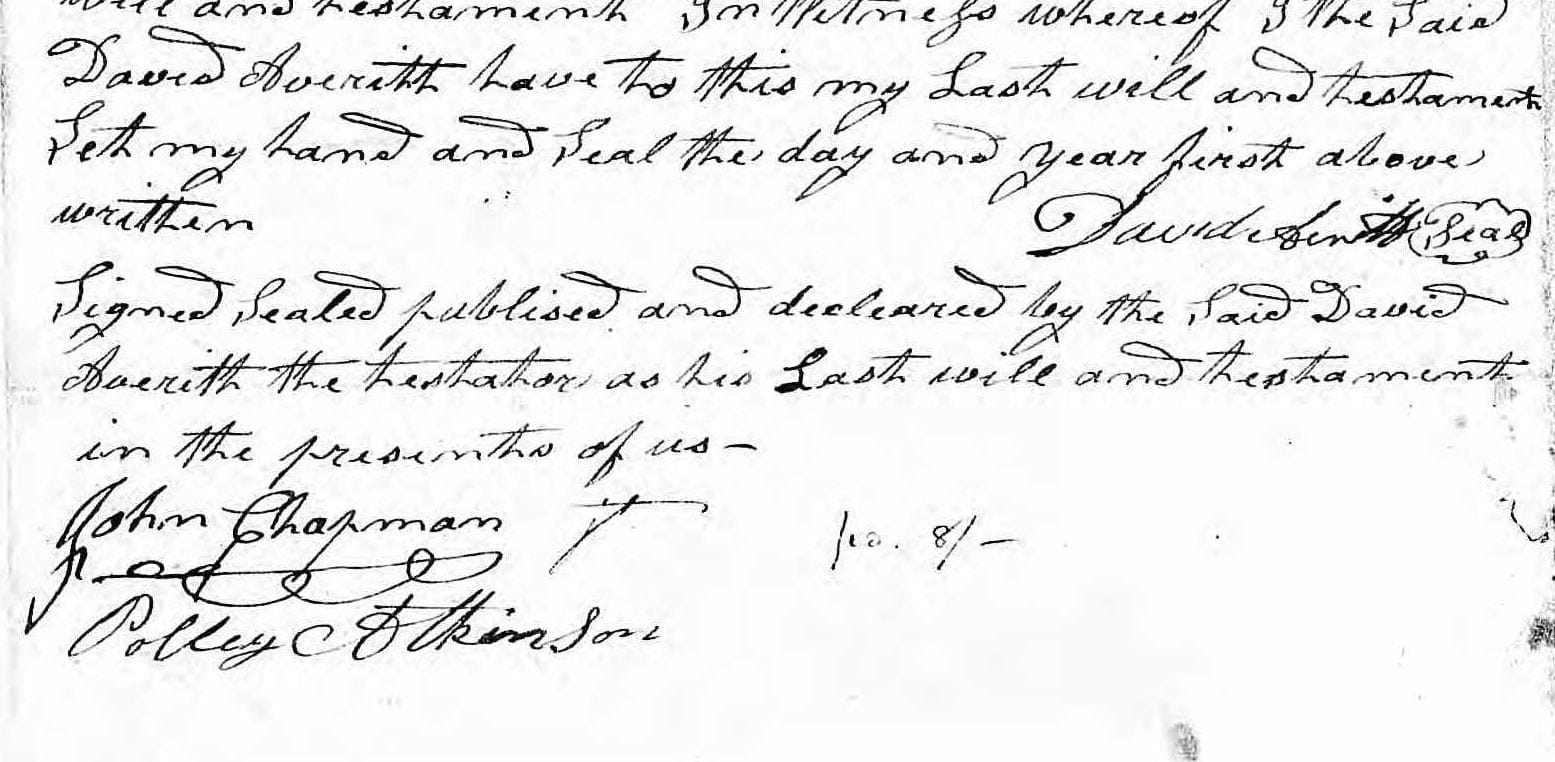 will and testament In Witness whereof I the Said
David Averitt have to this my Last will and testament
Set my hand and Seal the day and year first above
written
David Averitt Seal
Signed Sealed publised and decleared by the Said David
Averitt the testator as his Last will and testament
in the presents of us —
John Chapman
8/–
Polley Atkinson